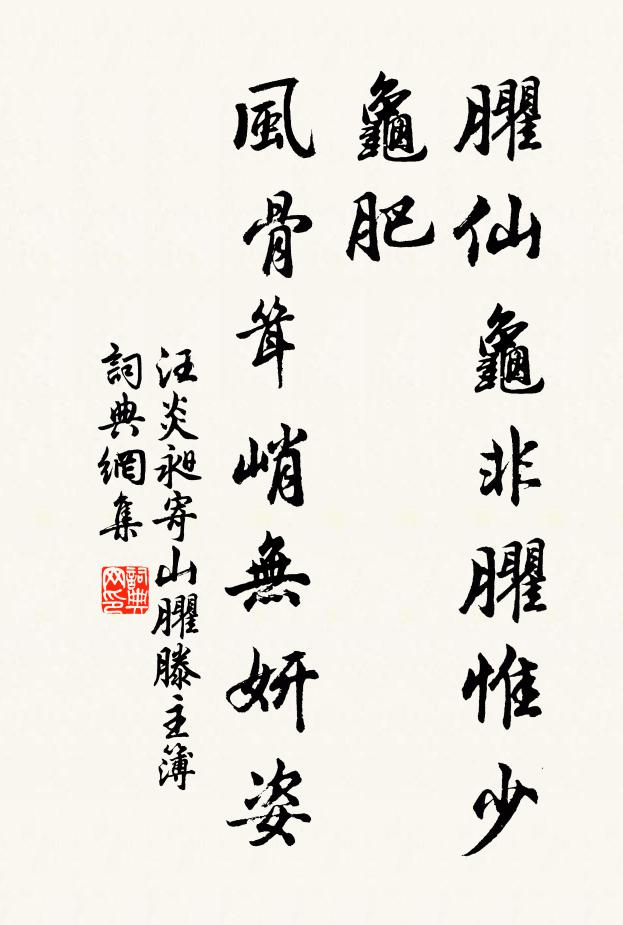 臞仙龜非臞惟少
龜肥
風骨聳峭無妍姿
汪炎昶寄山臞滕主簿
詞典網集
詞典
网印